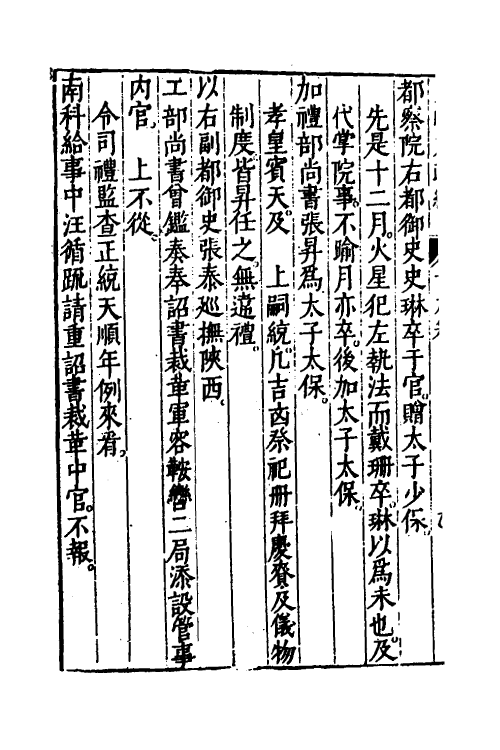 都察院右都御史史琳卒于官。贈太子少保。
先是十二月。火星犯左執法而戴珊卒。琳以為未也。及
代掌院事。不踰月亦卒。後加太子太保。
加禮部尚書張昇為太子太保。
孝皇賓天。及　上嗣統。凡吉凶祭祀冊拜慶賚及儀物
制度。皆昇任之。無違禮。
以右副都御史張泰巡撫陝西。
工部尚書曾鑑奏奉詔書裁革軍容鞍轡二局添設管事
内官。　上不從。
令司禮監查正統天順年例來看。
南科給事中汪循疏請重詔書裁革中官。不報。